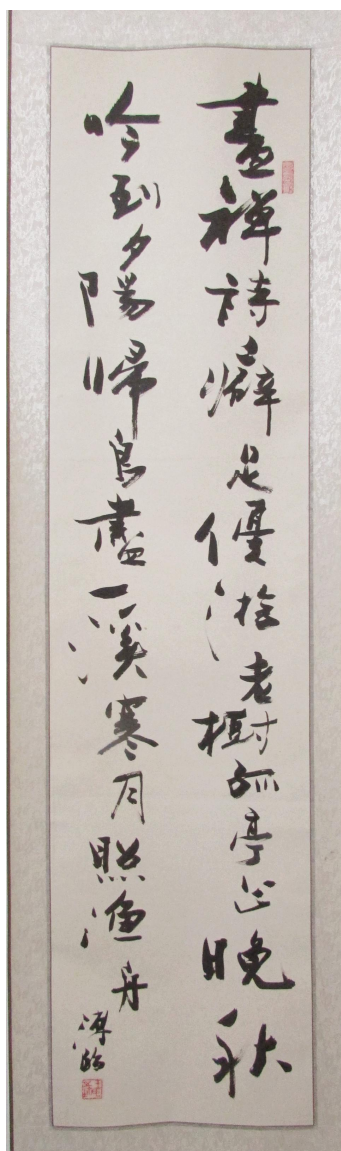 畫禪詩癖足優游老樹孤亭正晚秋
吟到夕陽歸鳥盡一溪寒月照漁舟